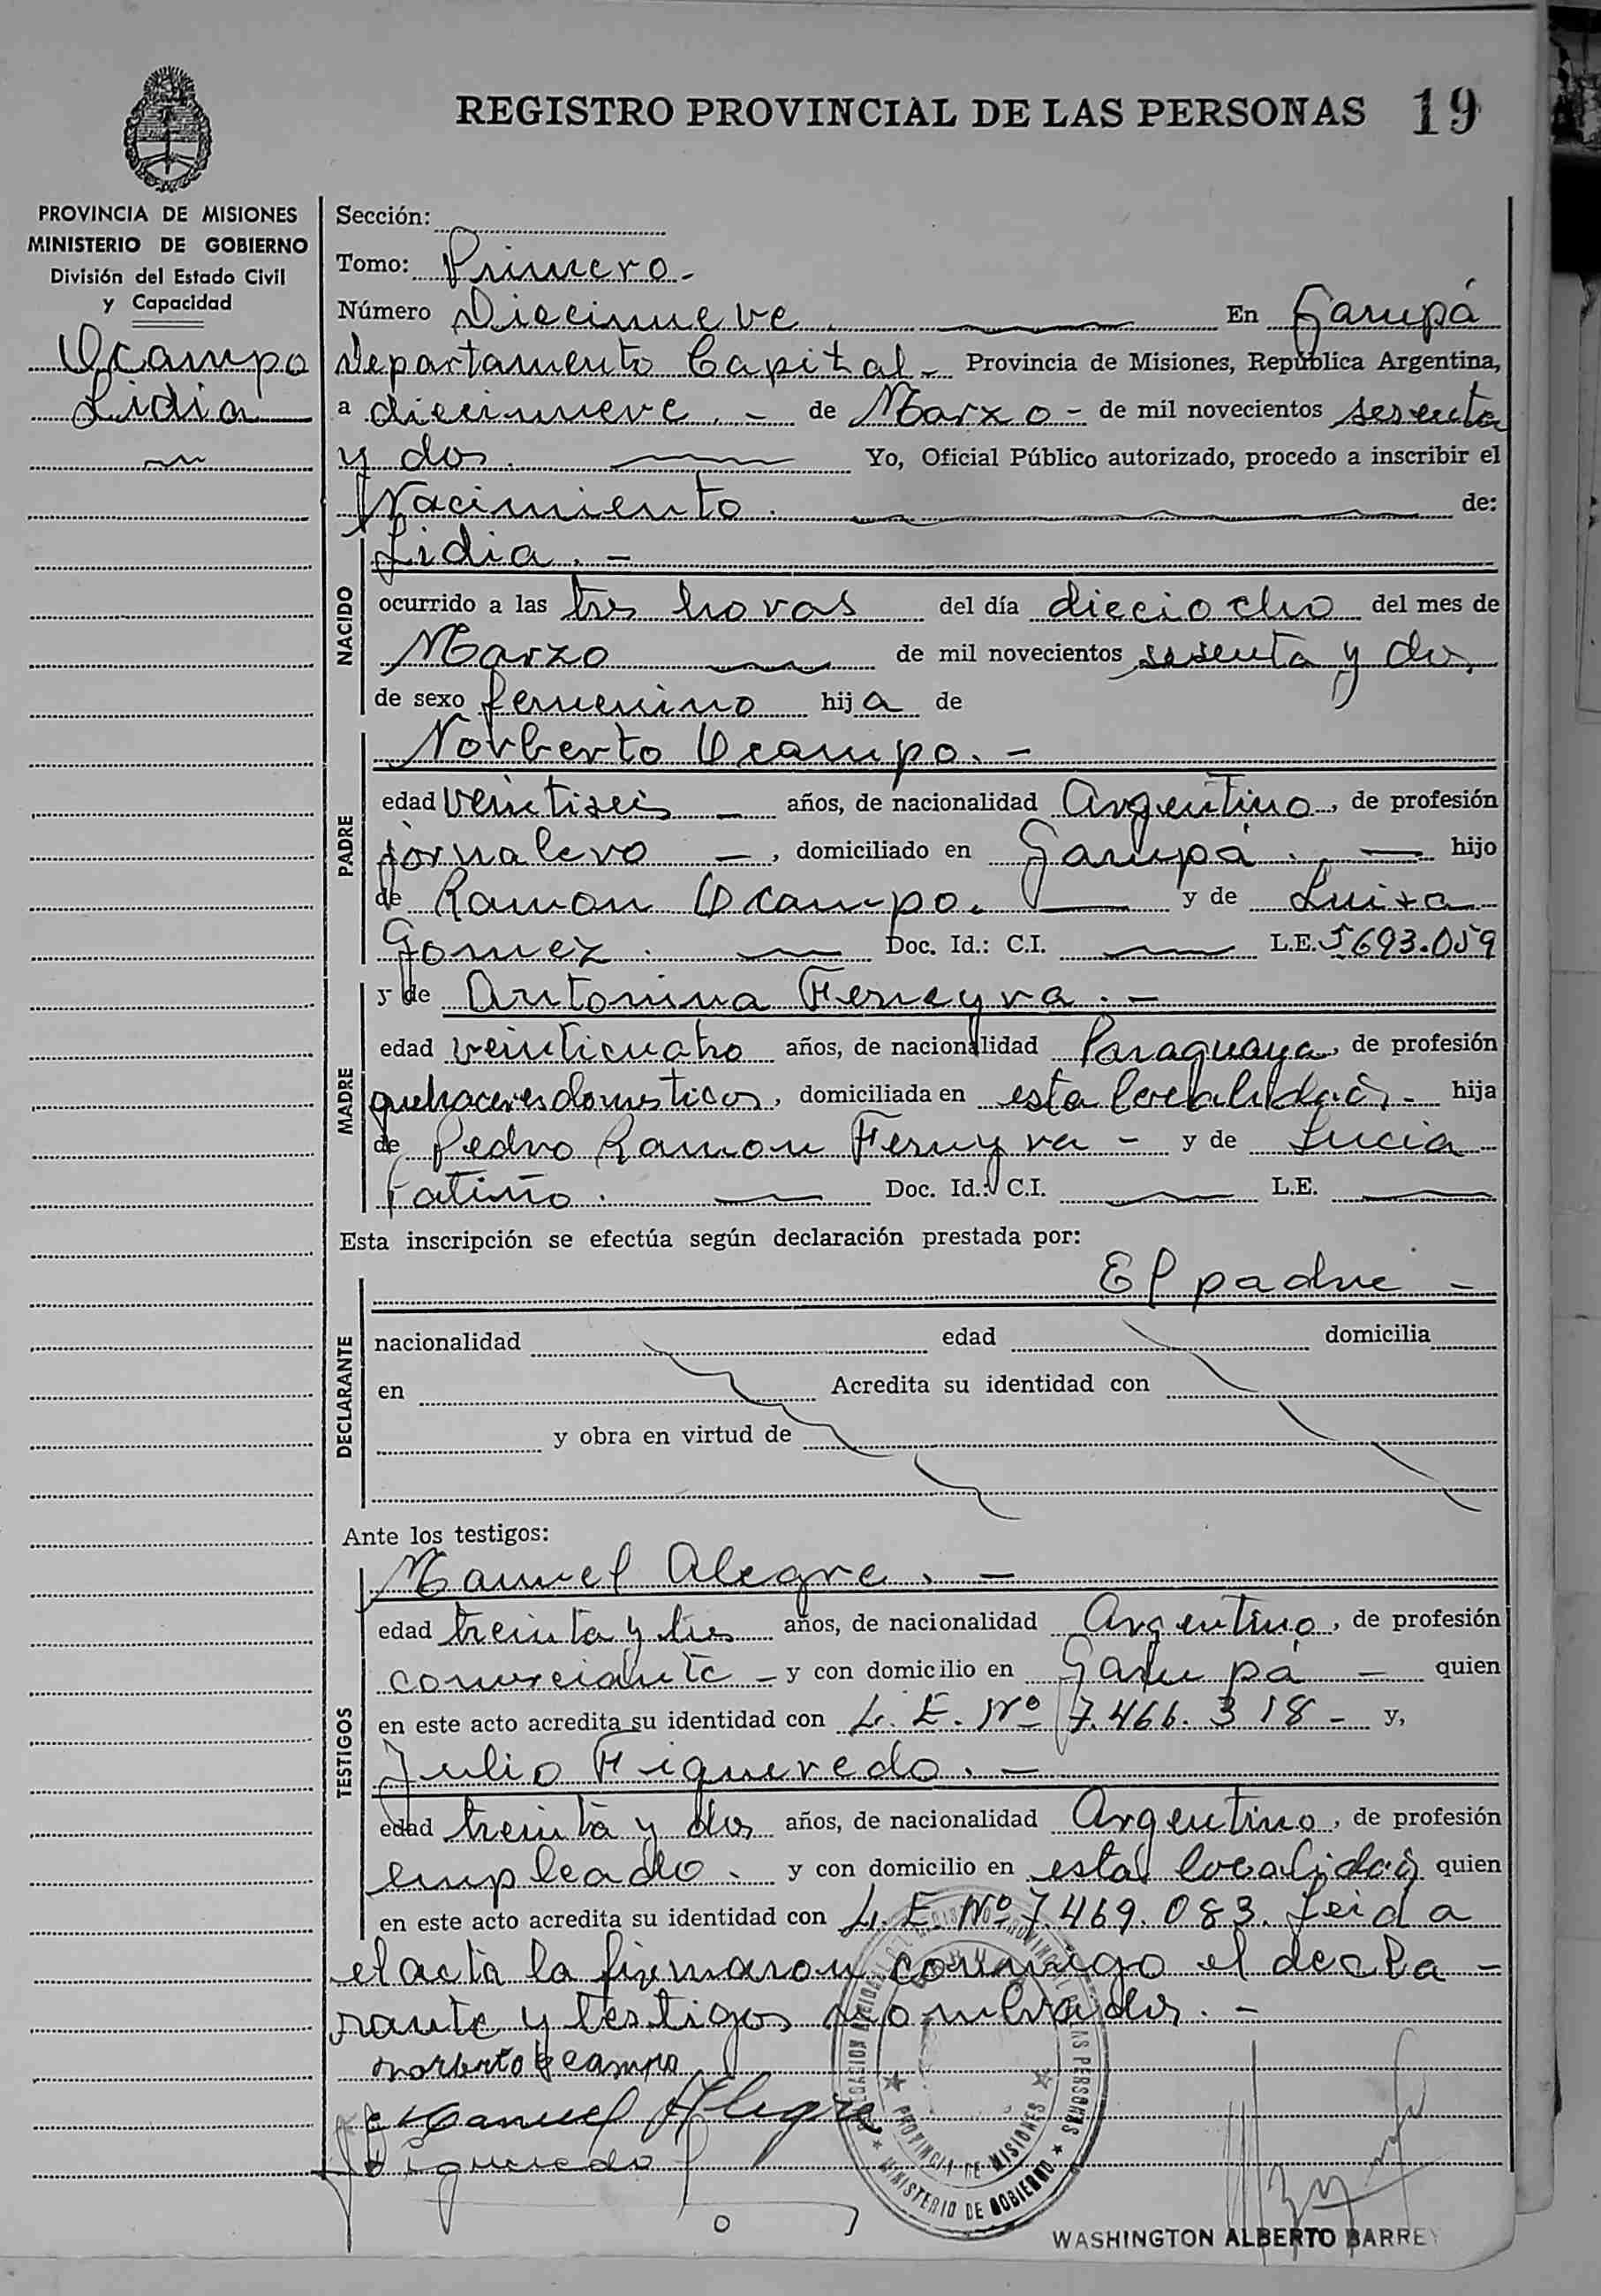 REGISTRO PROVINCIAL DE LAS PERSONAS 19
PROVINCIA DE MISIONES
MINISTERIO DE GOBIERNO
División del Estado Civil
y Capacidad
Ocampo
Lidia
Sección:
Tomo: Primero.-
Número Diecinueve. En Garupá
Departamento Capital.- Provincia de Misiones, República Argentina,
a diecinueve.- de Marzo- de mil novecientos sesenta
y dos. Yo, Oficial Público autorizado, procedo a inscribir el
Nacimiento. de:
NACIDO
Lidia.-
ocurrido a las tres horas del día dieciocho del mes de
Marzo de mil novecientos sesenta y dos,
de sexo femenino hija de
PADRE
Norberto Ocampo.-
edad veintiseis años, de nacionalidad Argentino, de profesión
jornalero -, domiciliado en Garupá. hijo
de Ramon Ocampo. y de Luisa
Gomez. Doc. Id.: C.I. L.E. 5693.059
MADRE
y de Antonina Ferreyra.-
edad veinticuatro años, de nacionalidad Paraguaya, de profesión
quehaceres domesticos, domiciliada en esta localidad,- hija
de Pedro Ramon Ferreyra - y de Lucia
Fatiño. Doc. Id.: C.I. L.E.
Esta inscripción se efectúa según declaración prestada por:
DECLARANTE
El padre -
nacionalidad edad domicilia
en Acredita su identidad con
y obra en virtud de
Ante los testigos:
TESTIGOS
Manuel Alegre.-
edad treinta y tres años, de nacionalidad Argentino, de profesión
comerciante - y con domicilio en Garupá - quien
en este acto acredita su identidad con L.E. Nº 7.466.318 - y,
Julio Figueredo.-
edad treinta y dos años, de nacionalidad Argentino, de profesión
empleado. y con domicilio en esta localidad quien
en este acto acredita su identidad con L.E. Nº 7.469.083. Leida
el acta la firmaron conmigo el decla-
rante y testigos nombrados.-
Norberto Ocampo
Manuel Alegre
Figueredo
PROVINCIA DE MISIONES
MINISTERIO DE GOBIERNO
WASHINGTON ALBERTO BARRE